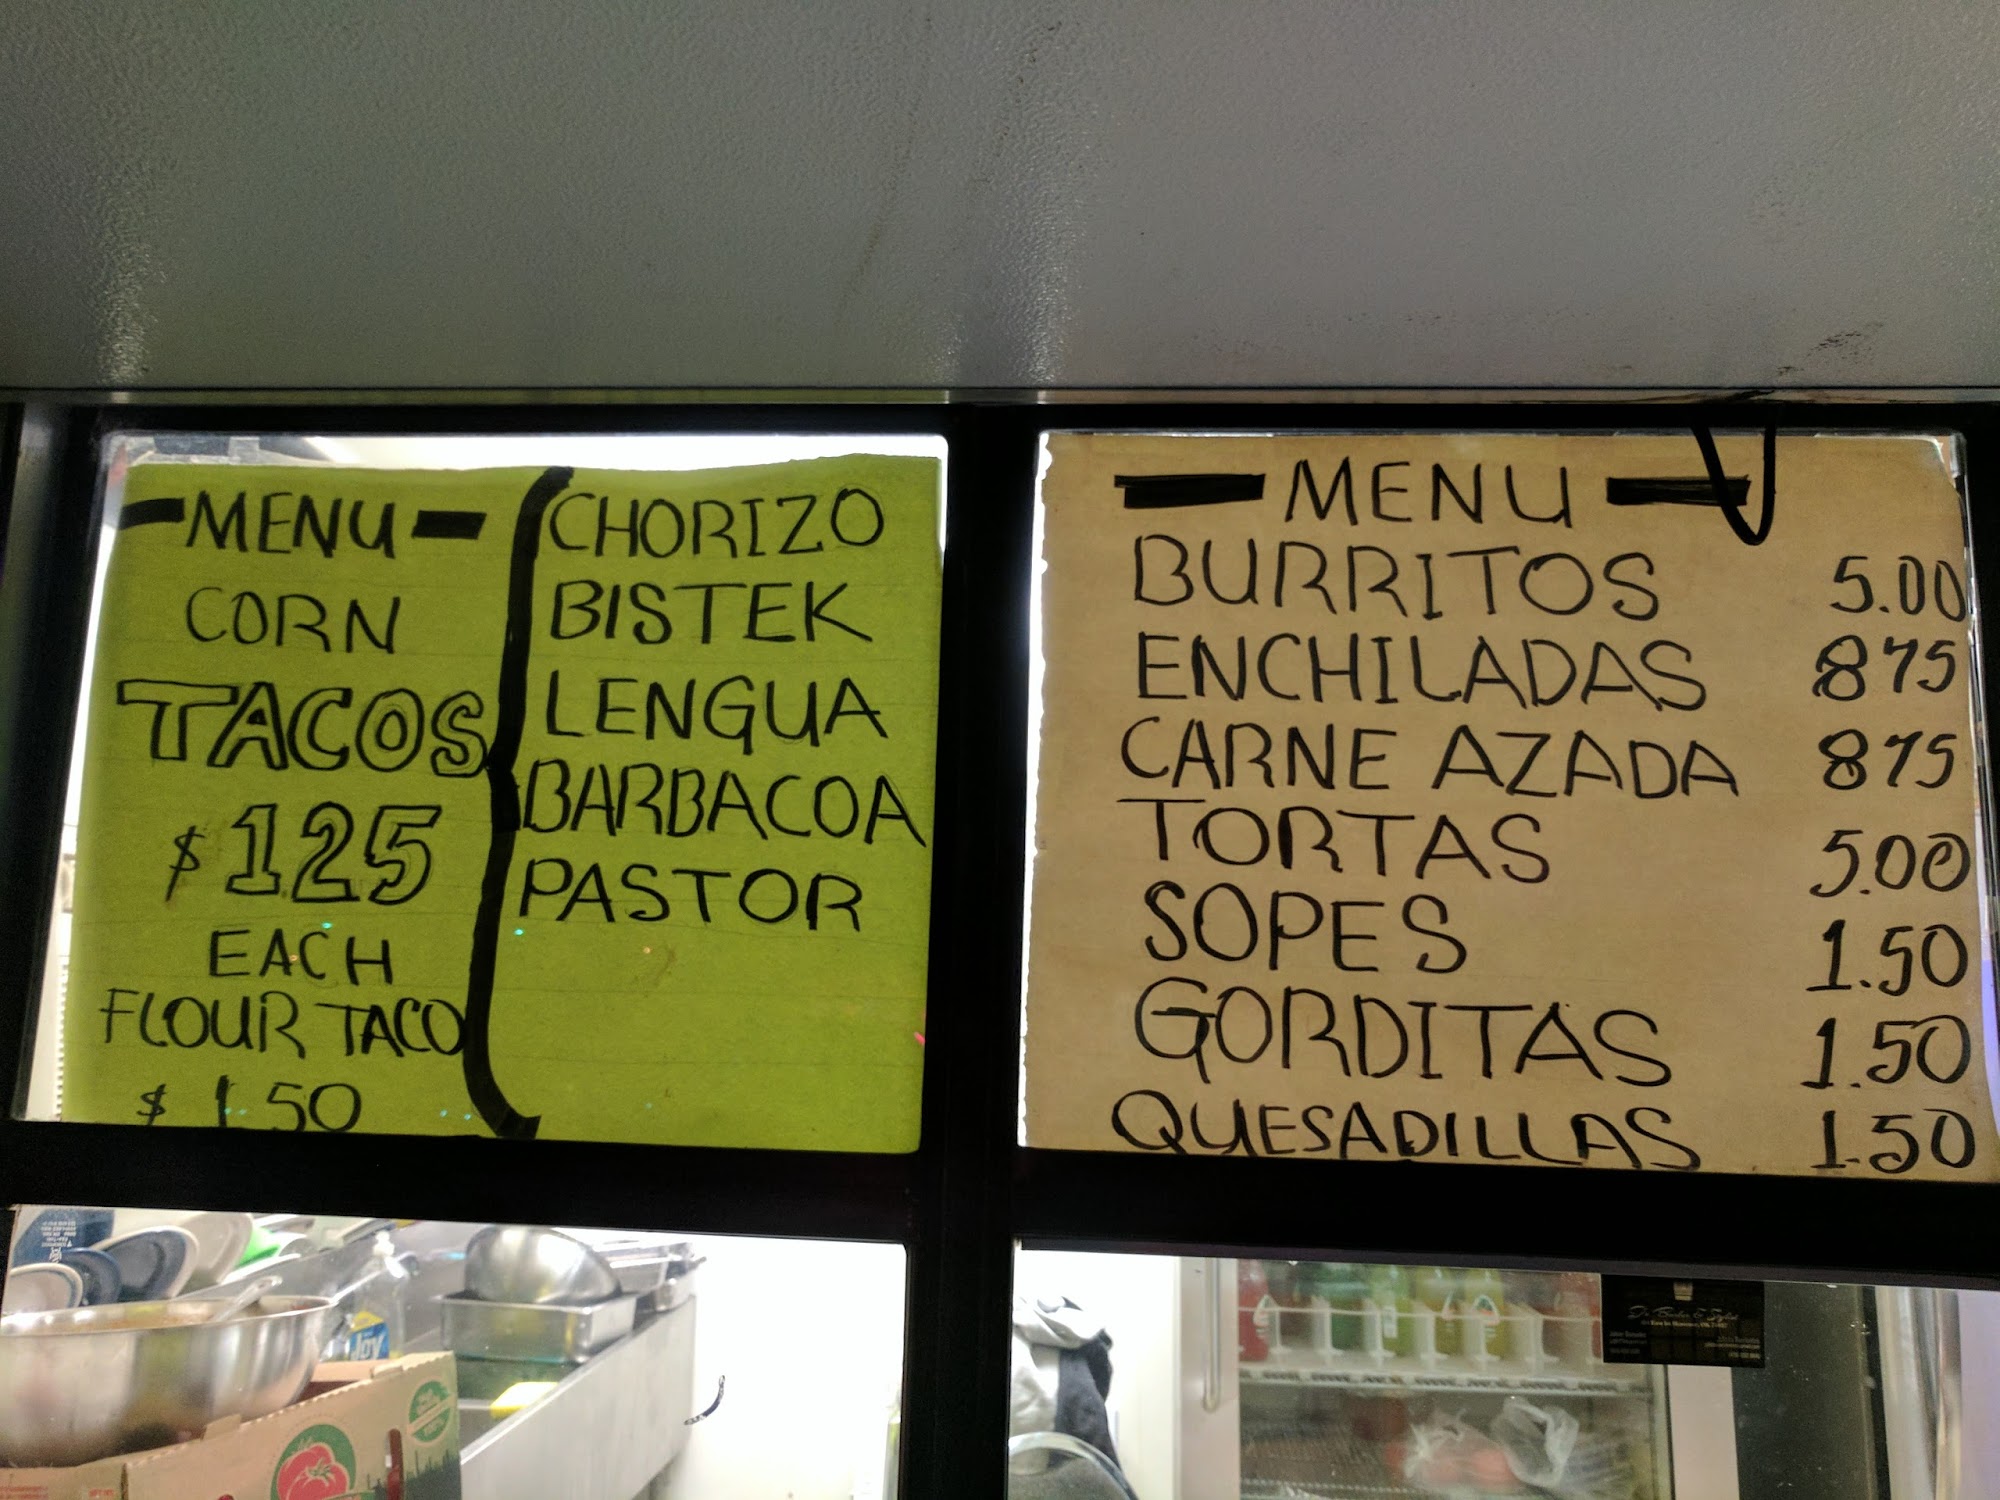 MENU
CORN
TACOS
$ 1.25
EACH
FLOUR TACO
$ 1.50
CHORIZO
BISTEK
LENGUA
BARBACOA
PASTOR
MENU
BURRITOS 5.00
ENCHILADAS 8 75
CARNE AZADA 8 75
TORTAS 5.00
SOPES 1.50
GORDITAS 1.50
QUESADILLAS 1.50
Joy